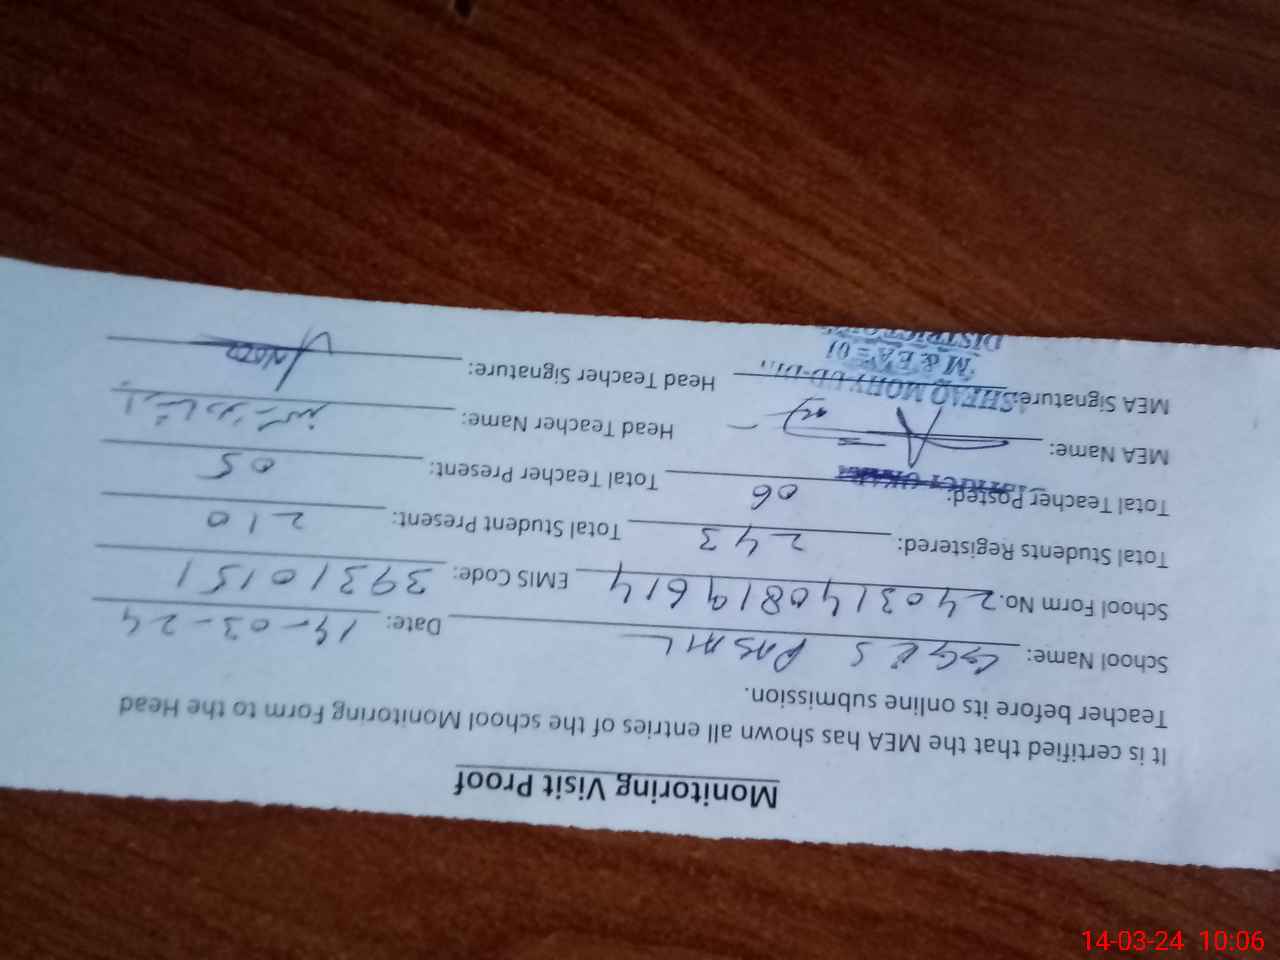 Monitoring Visit Proof
It is certified that the MEA has shown all entries of the school Monitoring Form to the Head
Teacher before its online submission.
School Name: GGES Date: 14-03-24
School Form No. 2403140819614 EMIS Code: 39310151
Total Students Registered: 243 Total Student Present: 210
Total Teacher Posted: 06 Total Teacher Present: 05
MEA Name: Head Teacher Name:
MEA Signature: Head Teacher Signature:
ASHFAQ MOHY-UD-DIN
M & EA = 01
DISTRICT
14-03-24 10:06